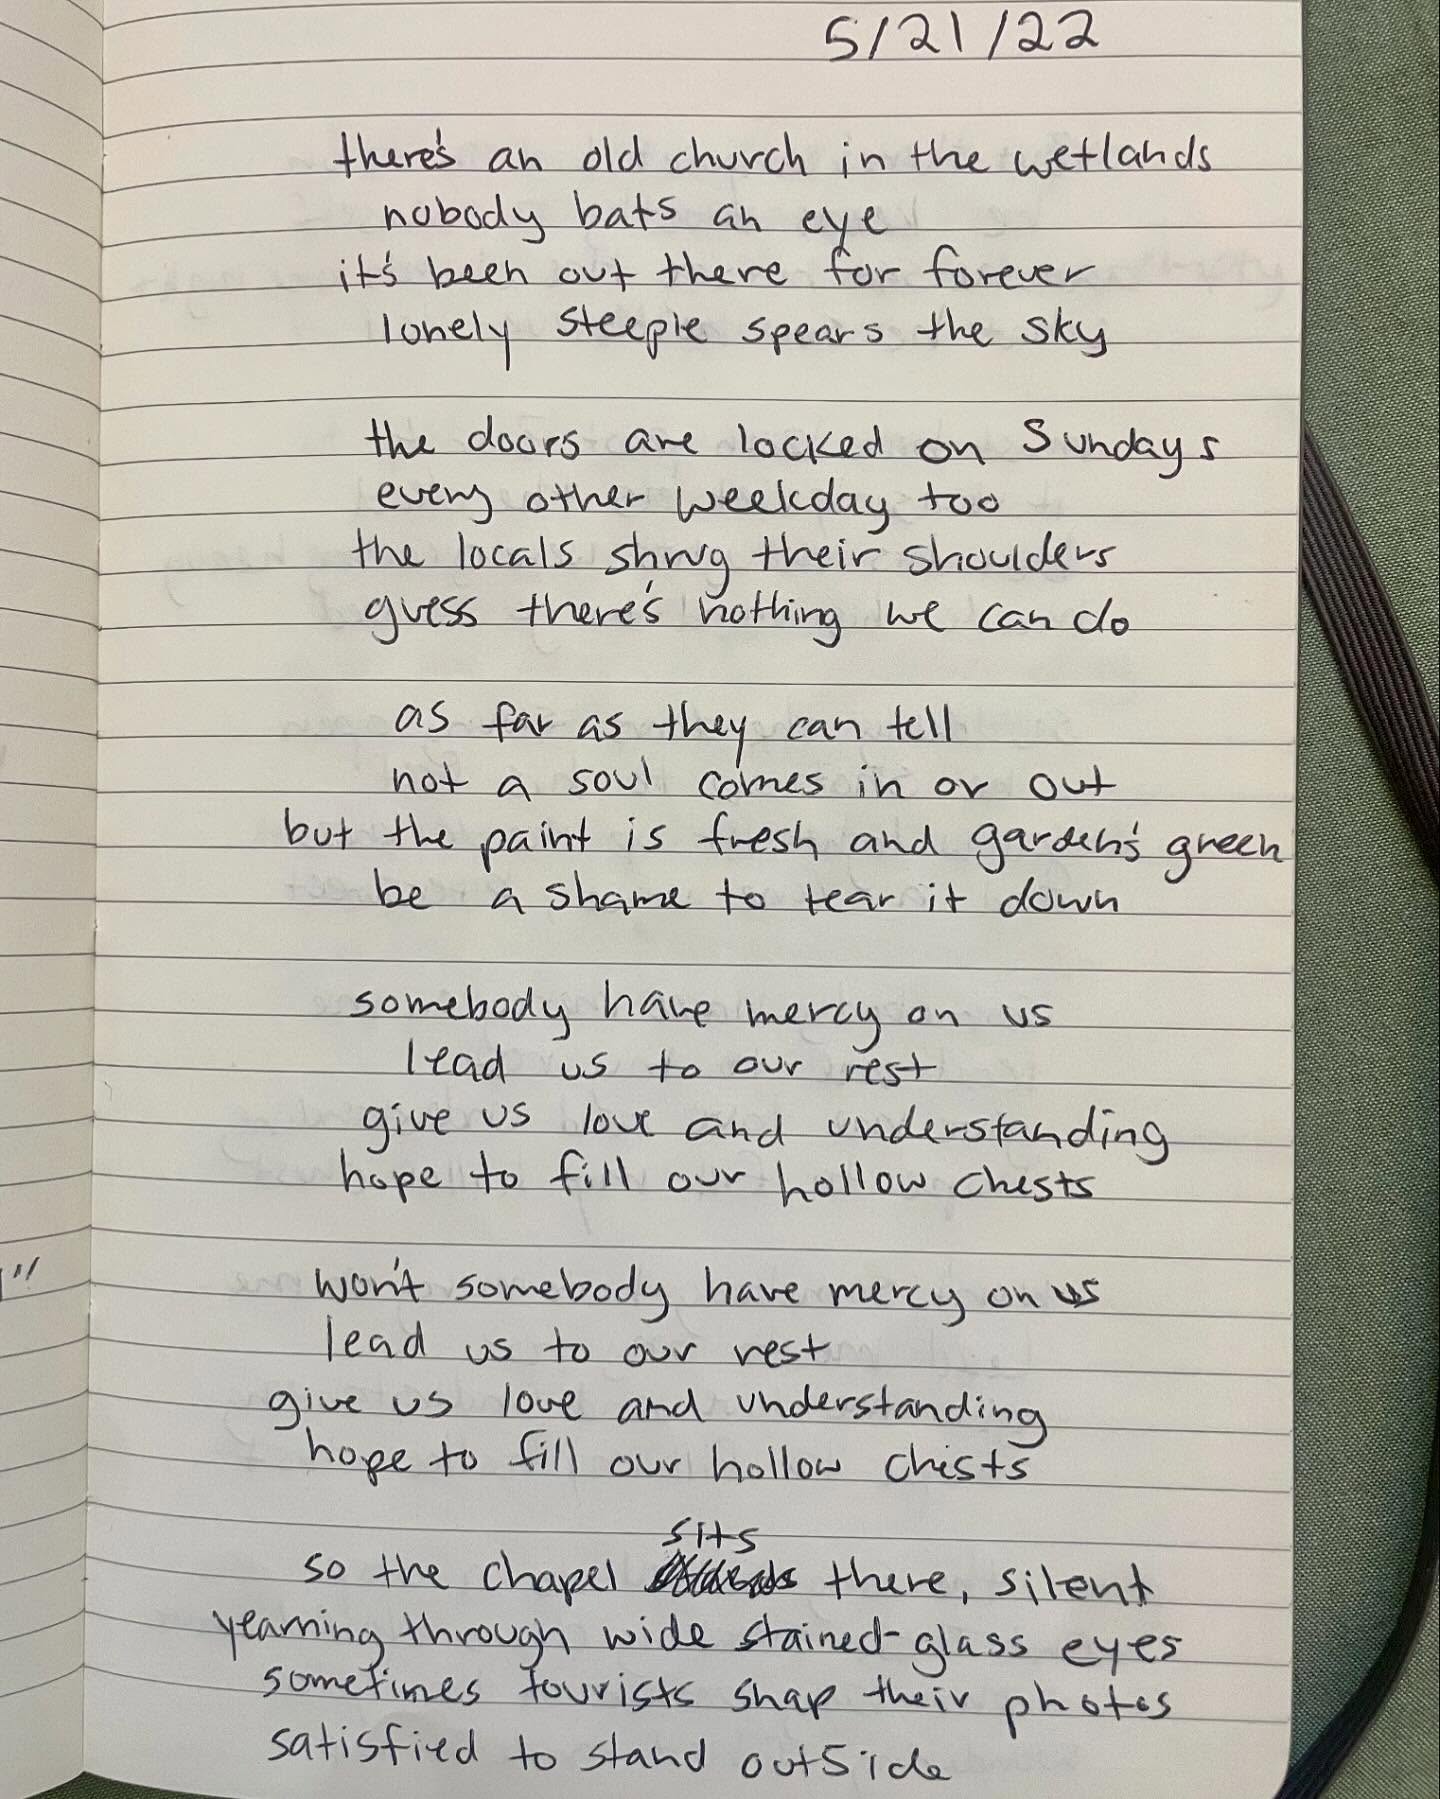 5/21/22
there's an old church in the wetlands
nobody bats an eye
it's been out there for forever
lonely steeple spears the sky
the doors are locked on Sundays
every other weekday too
the locals shrug their shoulders
guess there's nothing we can do
as far as they can tell
not a soul comes in or out
but the paint is fresh and garden's green
be a shame to tear it down
somebody have mercy on us
lead us to our rest
give us love and understanding
hope to fill our hollow chests
won't somebody have mercy on us
lead us to our rest
give us love and understanding
hope to fill our hollow chests
sits
so the chapel there, silent
yearning through wide stained-glass eyes
sometimes tourists snap their photos
satisfied to stand outside